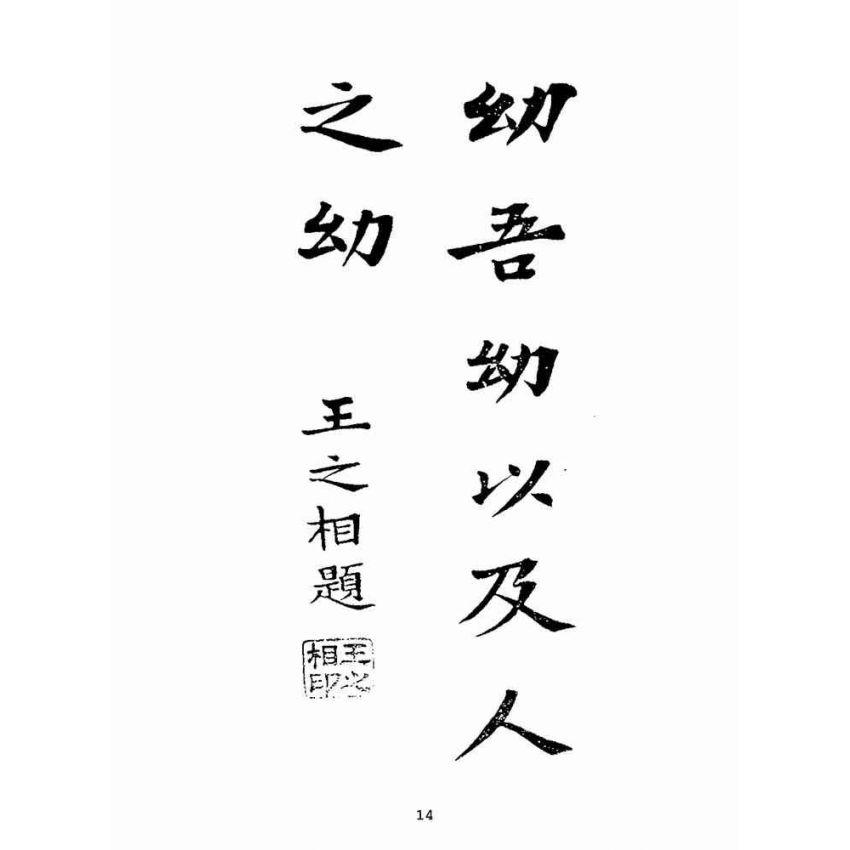 幼吾幼以及人
之幼
王之相題
王之相印
14